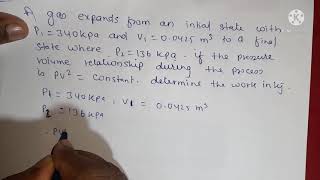 A gas expands from an initial state with
P₁ = 340 kpa and V₁ = 0.0425 m³ to a final
state where P₂ = 136 kpa. if the pressure
volume relationship during the process
is PV² = constant. determine the work in kj.
P₁ = 340 kpa, V₁ = 0.0425 m³
P₂ = 136 kpa